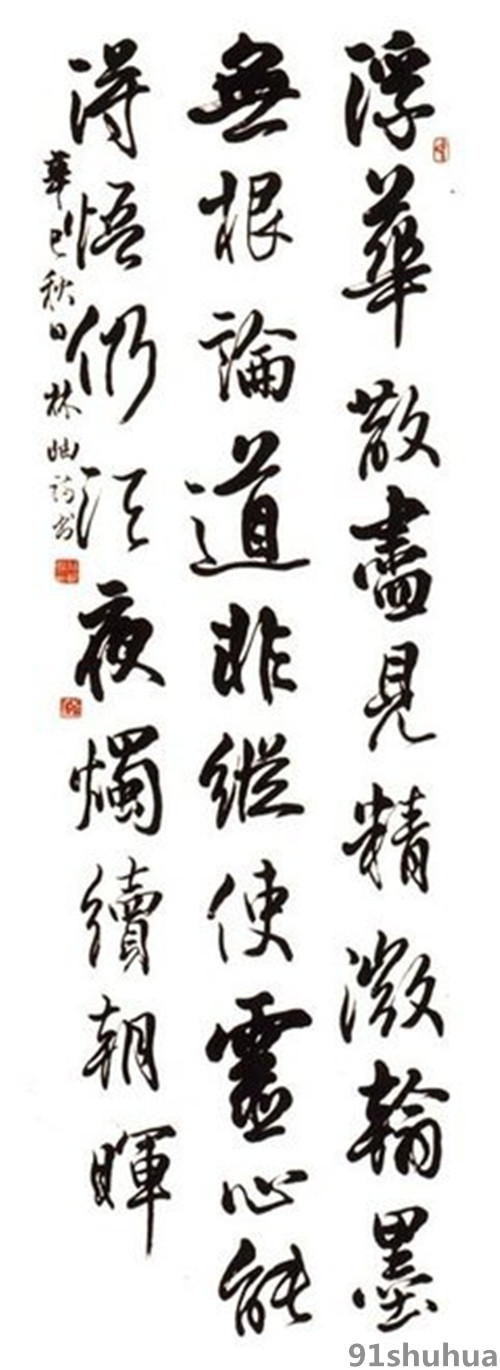 浮華散盡見精微翰墨
無根論道非縱使靈心能
得悟仍須夜燭續朝暉
辛巳秋日林岫詩書
91shuhua